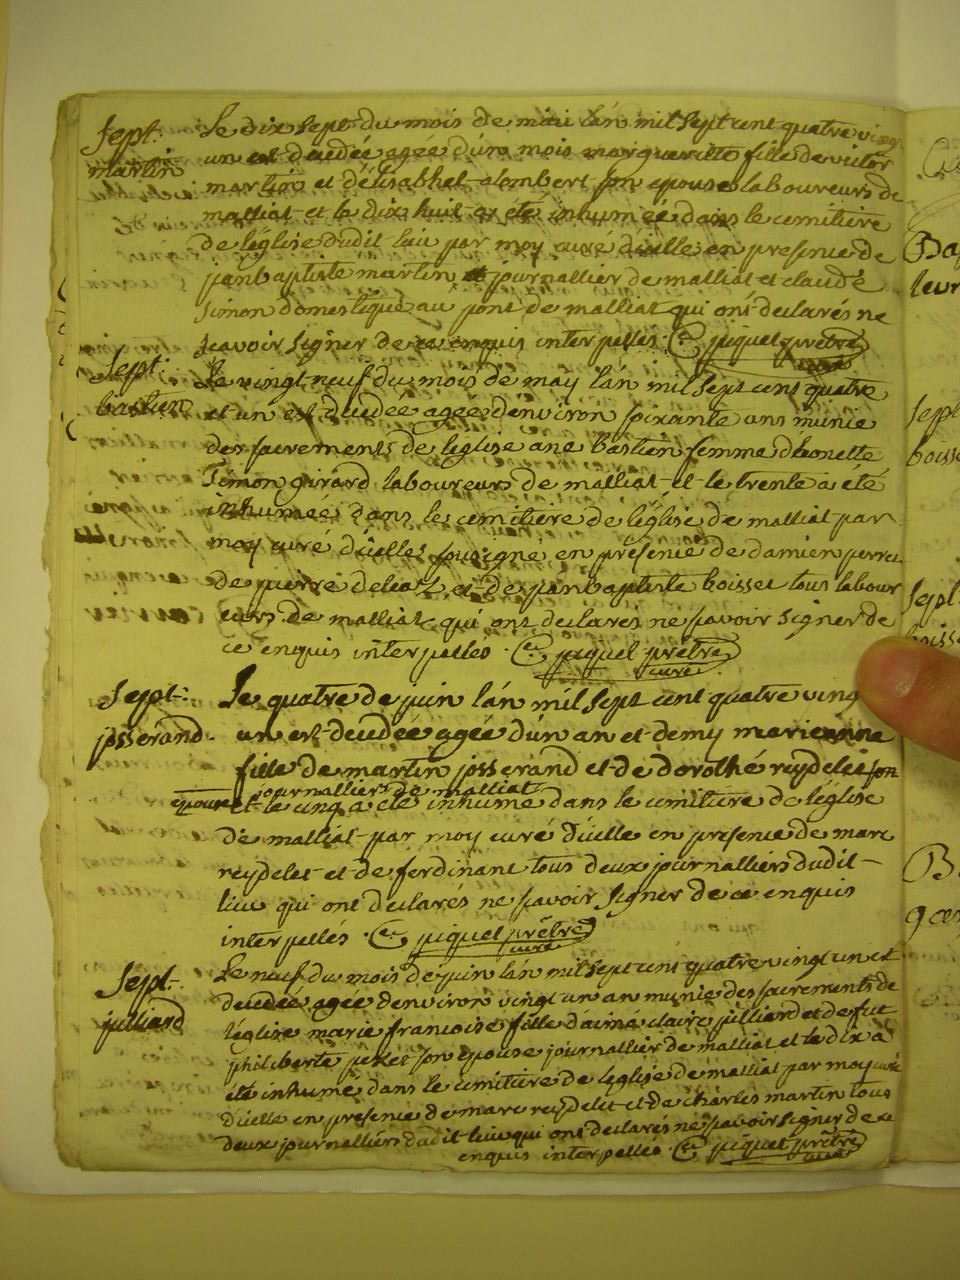 Sept:
martin
Le dix sept du mois de mai l'án mil sept cent quatre vingt
un est décédée agée d'ún mois margueritte fille de victor
martin et d'élisabhet alombert son epouse laboureurs de
malliat et le dix huit a été inhumée dans le cemitiere
de l'église dudit lieu par moy curé d'icelle en presence de
jeanbaptiste martin journallier de malliat et claude
simon domestique au pont de malliat qui ont declarés ne
scavoir signer de ce enquis interpellés. piquet prêtre
curé
Sept:
bastien
Le vingt neuf du mois de may l'án mil sept cent quatre
et un est décédée agée d'environ soixante ans munie
des sacrements de l'eglise ane bastien femme d'éonette
Simon girard laboureurs de malliat et le trente a été
inhumée dans le cemitiere de l'église de malliat par
moy curé d'icelles sousigné en présence de damien perret
de pierre et de jeanbaptiste boisset tous labour
eurs de malliat qui ont declarés ne savoir signer de
ce enquis interpellés. piquet prêtre
curé
Sept:
josserand.
Le quatre de juin l'án mil sept cent quatre ving
un est décédée agée d'ún an et demy marieanne
fille de martin josserand et de dorothé reydelet son
epouse journalliers de malliat
et le cinq a été inhumé dans le cemitiere de l'église
de malliat par moy curé d'icelle en presence de marc
reydelet et de ferdinant tous deux journalliers dudit
lieu qui ont declarés ne savoir signer de ce enquis
interpellés. piquet prêtre
curé
Sept:
julliard
Le neuf du mois de juin l'án mil sept cent quatre vingt un est
décédée agée d'environ vingt un an munie des sacrements de
l'église marie francoise fille d'aimé claire julliard et de fut
philiberte perret son epouse journallier de malliat et le dix a
été inhumé dans le cemitiere de l'église de malliat par moy curé
d'icelle en présence de marc reydelet et de charles martin tous
deux journalliers dudit lieu qui ont declarés ne savoir signer de ce
enquis interpellés. piquet prêtre
curé